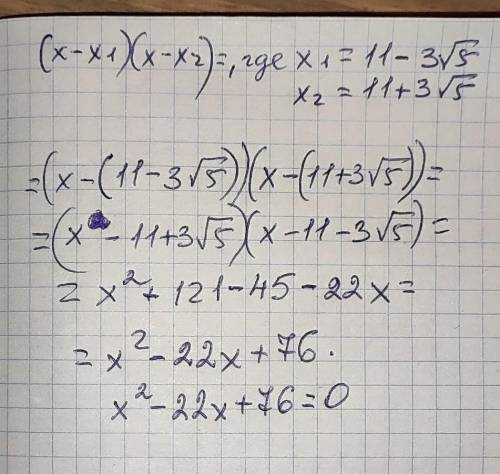 (x-x1)(x-x2)=, где x1 = 11-3√5
x2 = 11+3√5
=(x-(11-3√5))(x-(11+3√5))=
=(x -11+3√5)(x-11-3√5)=
= x²+121-45-22x=
= x²-22x+76.
x²-22x+76=0